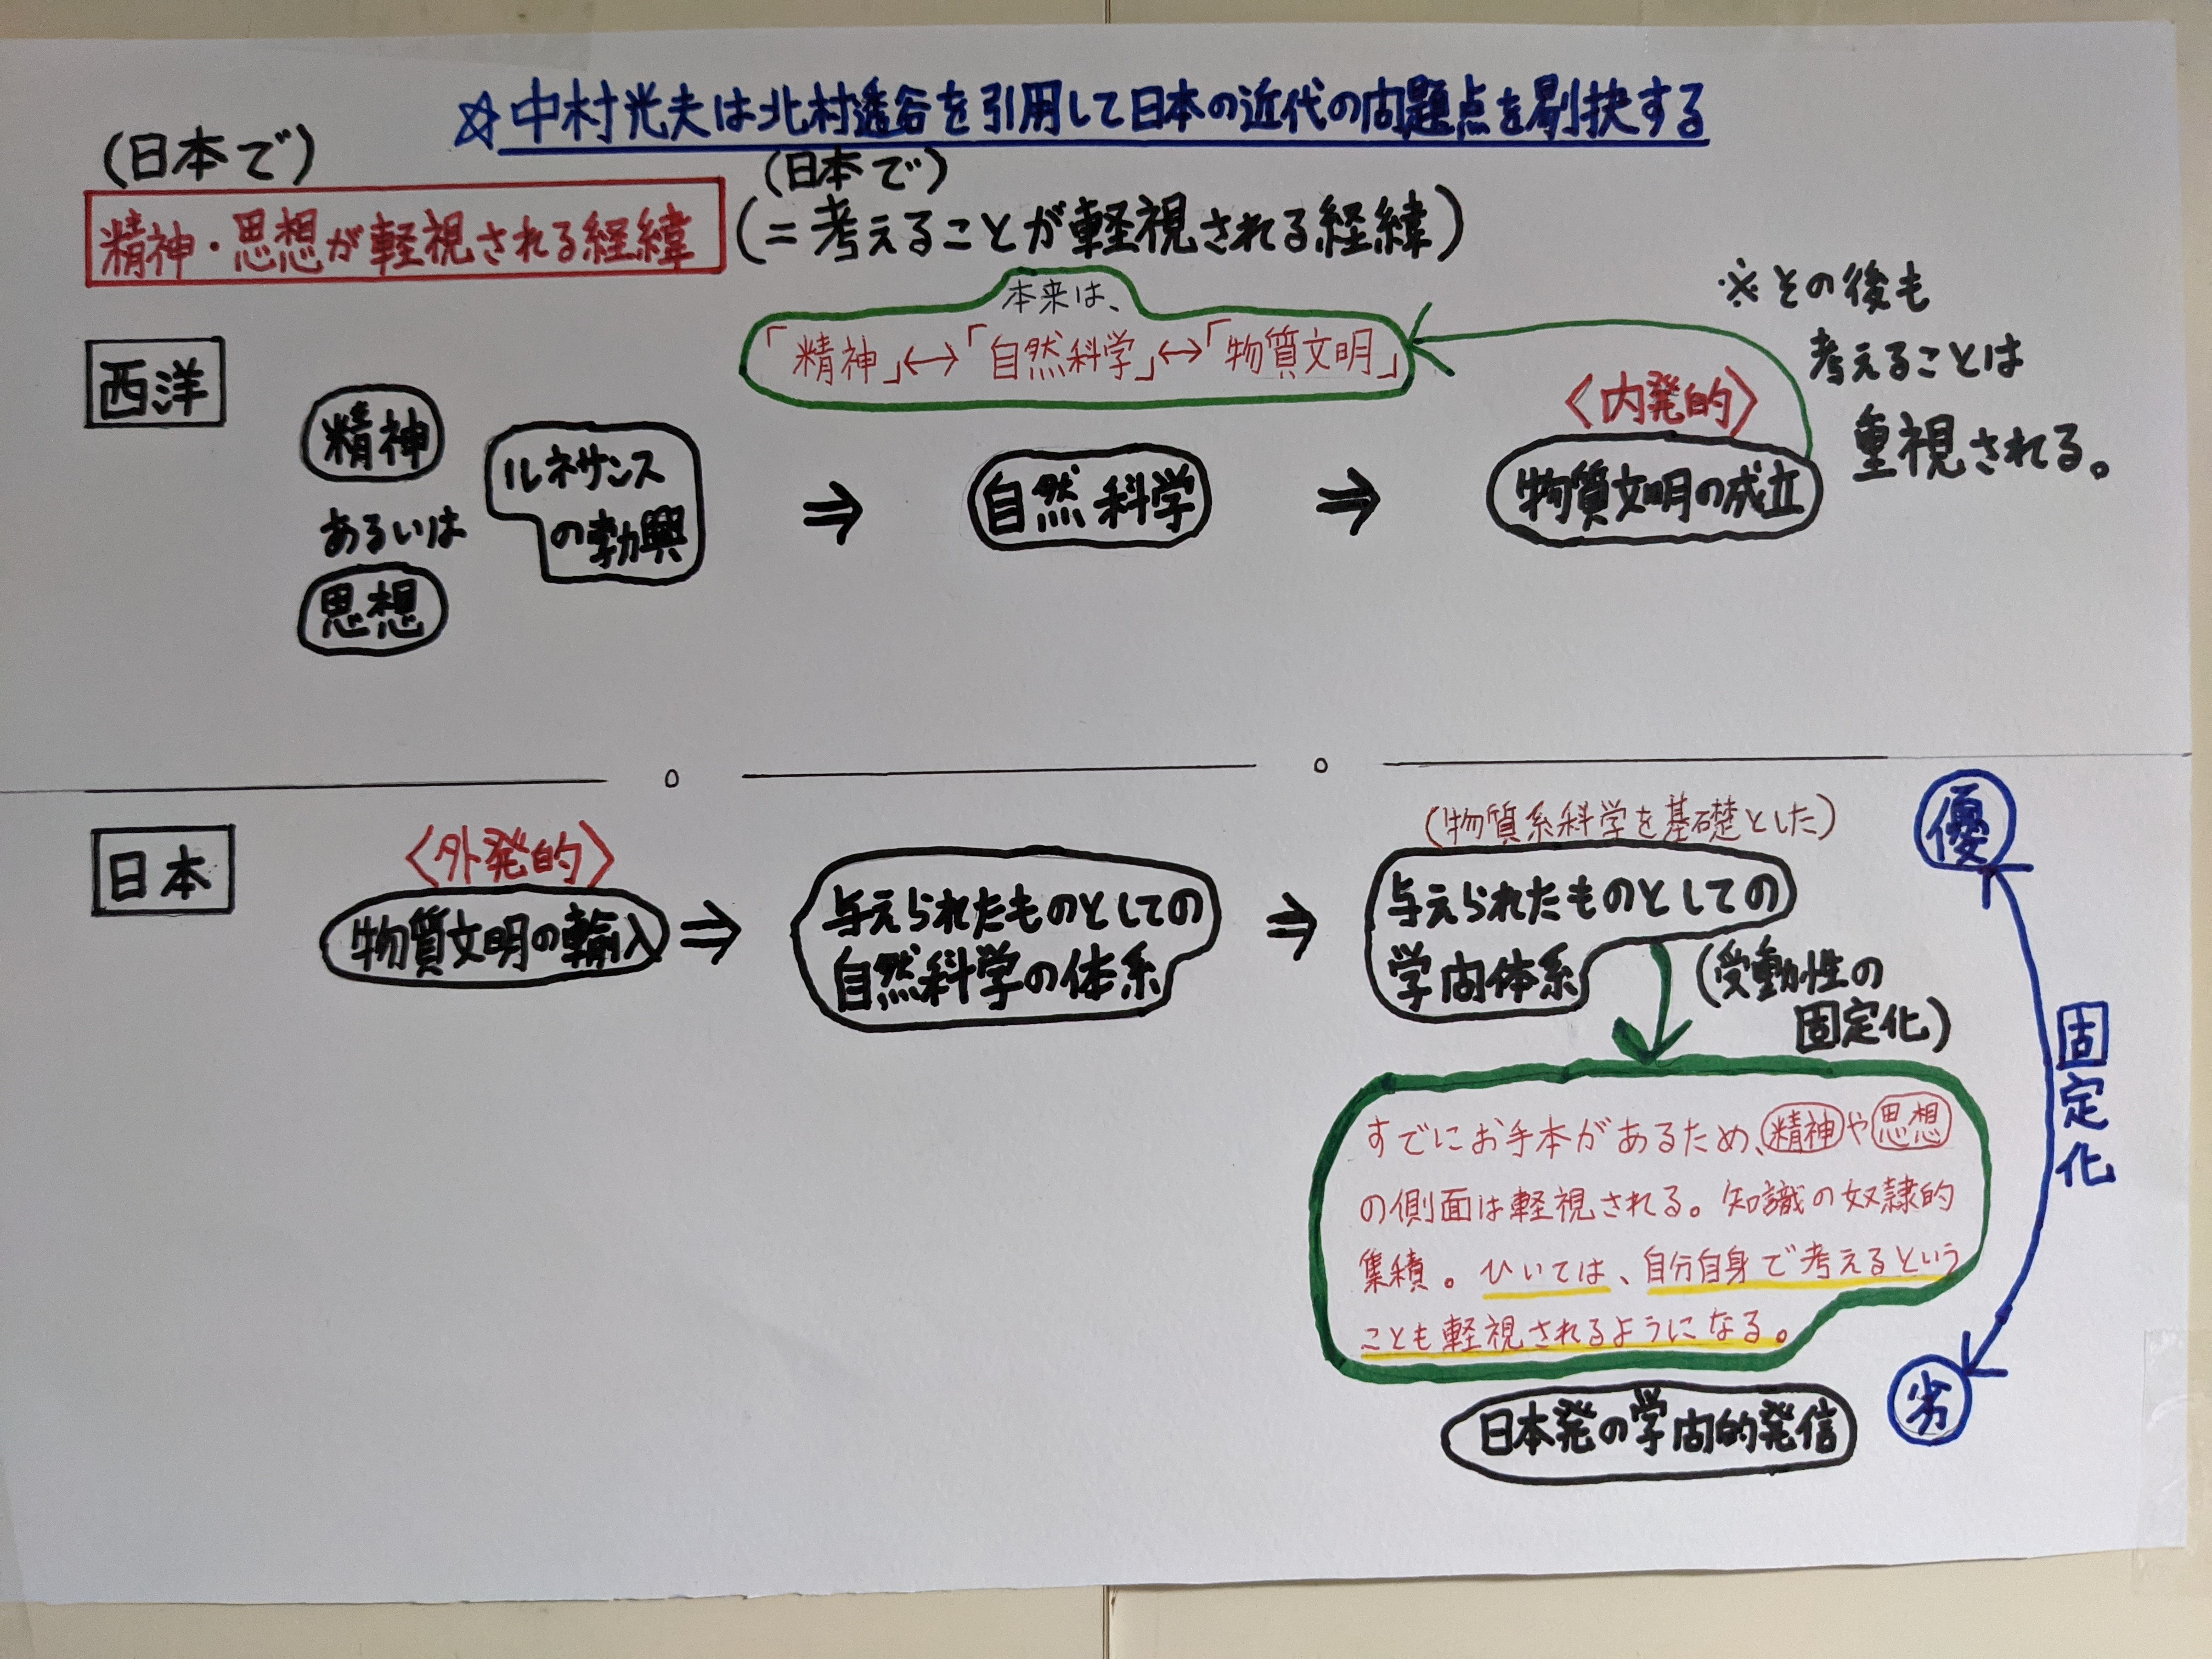 ☆中村光夫は北村透谷を引用して日本の近代の問題点を剔抉する
(日本で)
精神・思想が軽視される経緯
(日本で)
(=考えることが軽視される経緯)
西洋
精神
あるいは
思想
ルネサンス
の勃興
⇒
自然科学
⇒
〈内発的〉
物質文明の成立
本来は、
「精神」↔「自然科学」↔「物質文明」
※その後も
考えることは
重視される。
日本
〈外発的〉
物質文明の輸入
⇒
与えられたものとしての
自然科学の体系
⇒
(物質系科学を基礎とした)
与えられたものとしての
学問体系
(受動性の
固定化)
すでにお手本があるため、精神や思想
の側面は軽視される。知識の奴隷的
集積。ひいては、自分自身で考えるという
ことも軽視されるようになる。
日本発の学問的発信
優
固定化
劣